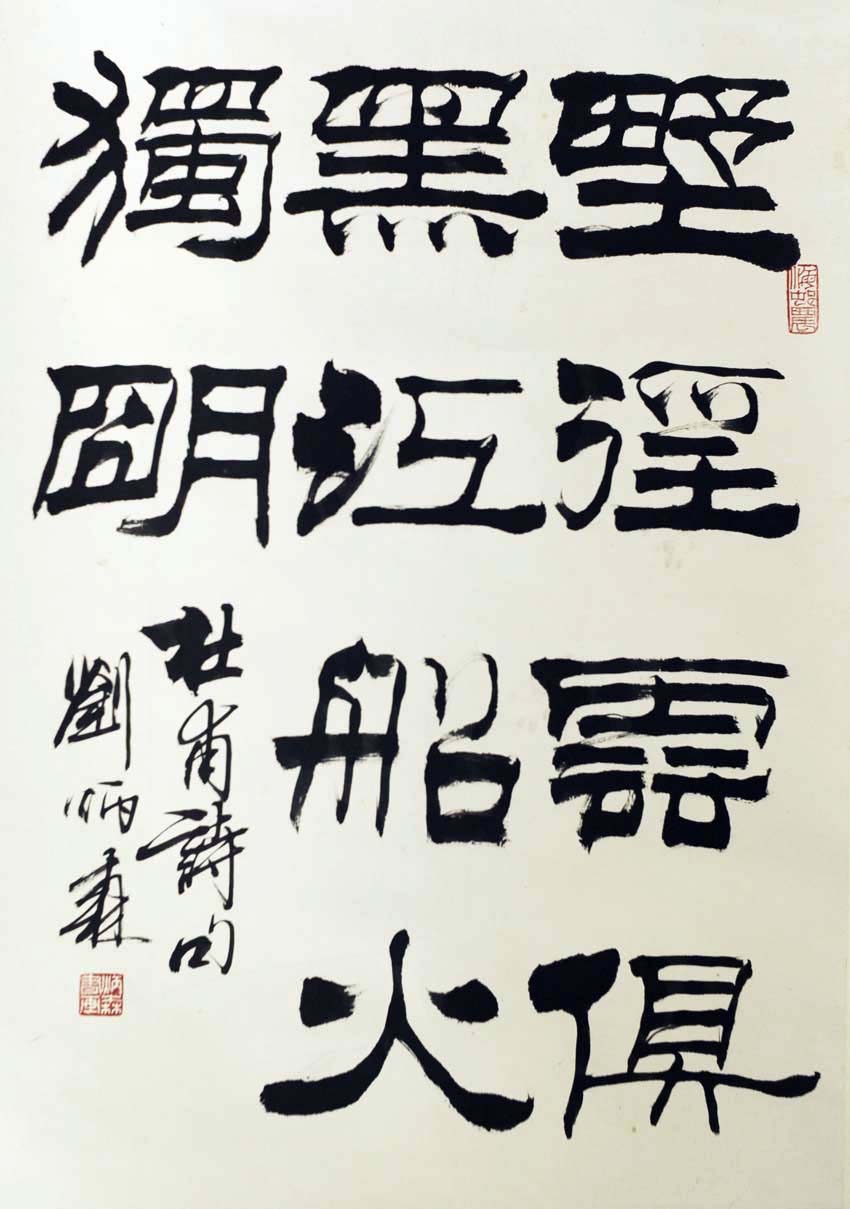 野徑雲俱
黑江船火
獨朙
杜甫詩句
劉炳森